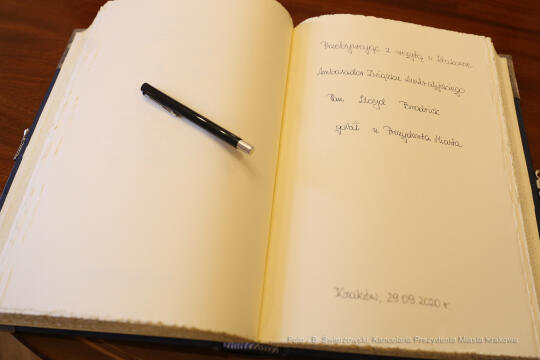 Przebywając z wizytą w Krakowie
Ambasador Związku Australijskiego
Pan Lloyd Brodrick
gościł u Prezydenta Miasta
Kraków, 29.09.2020 r.
Fot.: B. Świerzowski, Kancelaria Prezydenta Miasta Krakowa